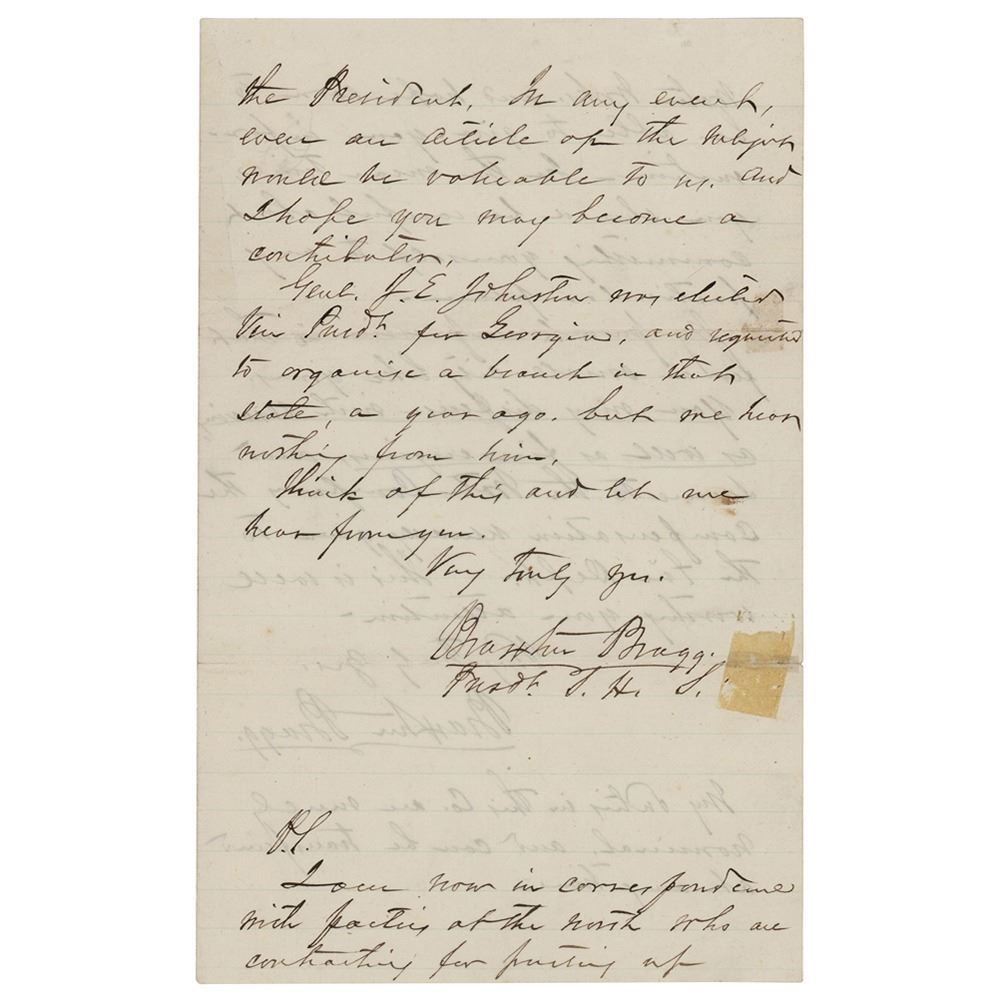 the President. In any event,
even an article on the subject
would be valuable to us. and
I hope you may become a
contributor.
Genl. J. E. Johnston was elected
Vice Presdt. for Georgia, and requested
to organise a branch in that
state, a year ago. but we hear
nothing from him.
Think of this and let me
hear from you.
Very truly yrs.
Braxton Bragg.
Presdt. S. H. S.
P.S.
I am now in correspondence
with parties at the north who are
contracting for putting up